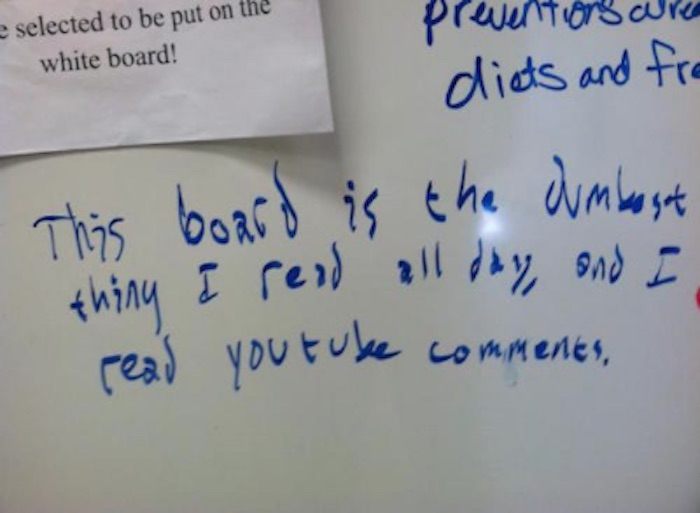 e selected to be put on the
white board!
preventions are
diets and fre
This board is the dumbest
thing I read all day, and I
read youtube comments.